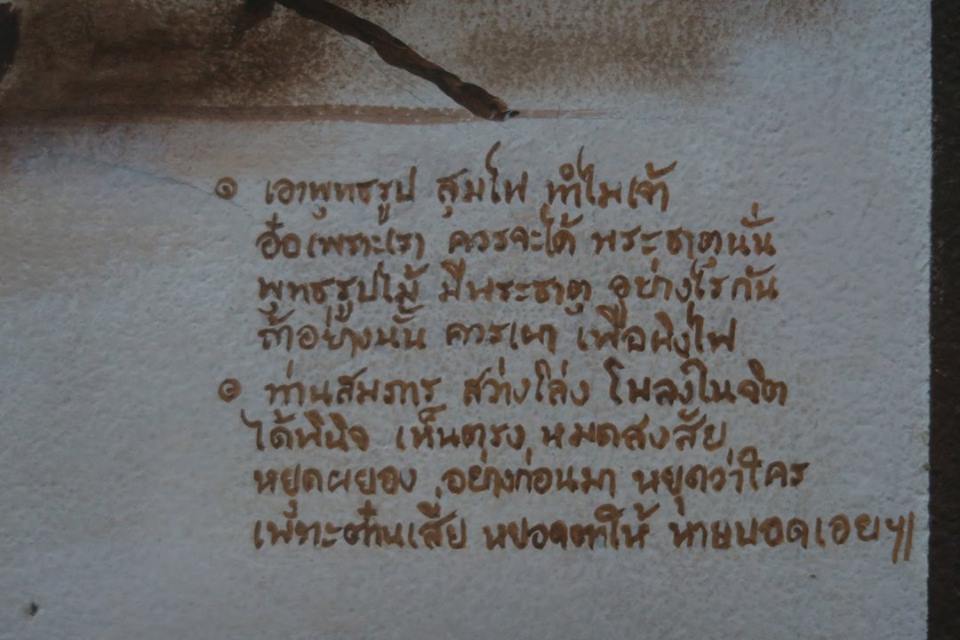 ๏ เอาพุทธรูป สุมไฟ ทำไมเจ้า
อ๋อเพราะเรา ควรจะได้ พระธาตุนั่น
พุทธรูปไม้ มีพระธาตุ อย่างไรกัน
ถ้าอย่างนั้น ควรเผา เพื่อผิงไฟ
๏ ท่านสมภาร สว่างโล่ง โพลงในจิต
ได้พินิจ เห็นตรง หมดสงสัย
หยุดผยอง อย่างก่อนมา หยุดว่าใคร
เพราะท่านเสี่ย หยอดตาให้ หายบอดเอยฯ